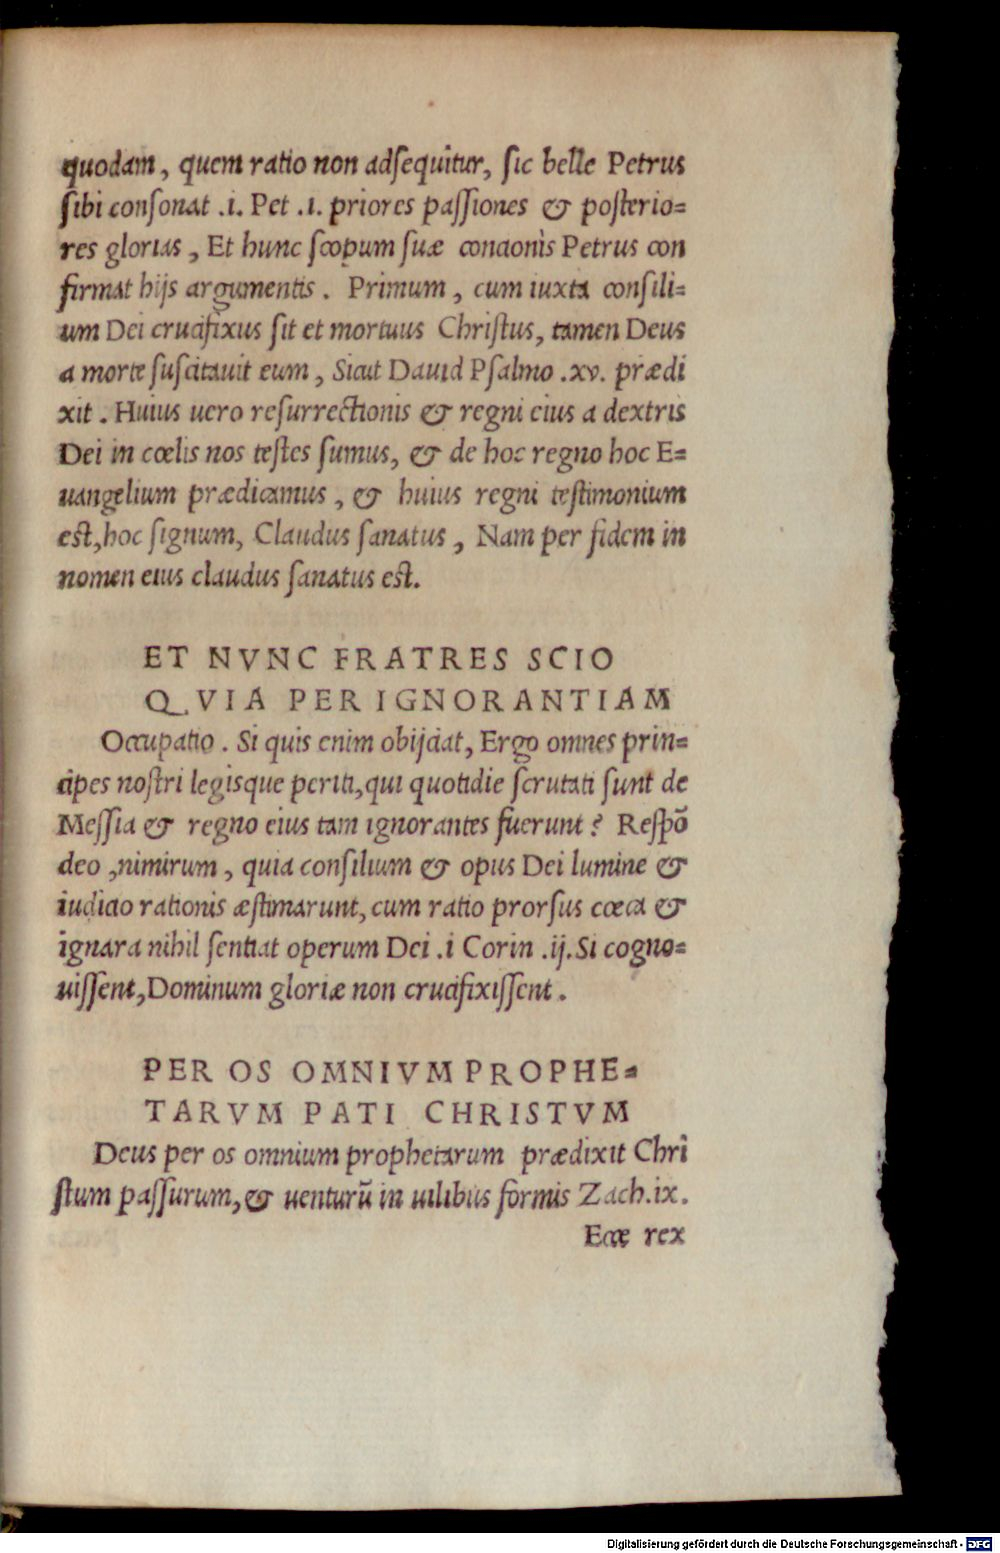 quodam, quem ratio non adsequitur, sic belle Petrus
sibi consonat .i. Pet .i. priores passiones & posterio=
res glorias, Et hunc scopum suæ concionis Petrus con
firmat hijs argumentis. Primum, cum iuxta consili=
um Dei crucifixus sit et mortuus Christus, tamen Deus
a morte suscitauit eum, Sicut Dauid Psalmo .xv. prædi
xit. Huius uero resurrectionis & regni eius a dextris
Dei in cœlis nos testes sumus, & de hoc regno hoc E=
uangelium prædicamus, & huius regni testimonium
est, hoc signum, Claudus sanatus, Nam per fidem in
nomen eius claudus sanatus est.
ET NVNC FRATRES SCIO
QVIA PER IGNORANTIAM
Occupatio. Si quis enim obijciat, Ergo omnes prin=
cipes nostri legisque periti, qui quotidie scrutati sunt de
Messia & regno eius tam ignorantes fuerunt? Respõ
deo, nimirum, quia consilium & opus Dei lumine &
iudicio rationis æstimarunt, cum ratio prorsus cœca &
ignara nihil sentiat operum Dei .i Corin .ij. Si cogno=
uissent, Dominum gloriæ non crucifixissent.
PER OS OMNIVM PROPHE=
TARVM PATI CHRISTVM
Deus per os omnium prophetarum prædixit Chri
stum passurum, & uenturũ in uilibus formis Zach.ix.
Ecce rex
Digitalisierung gefördert durch die Deutsche Forschungsgemeinschaft - DFG